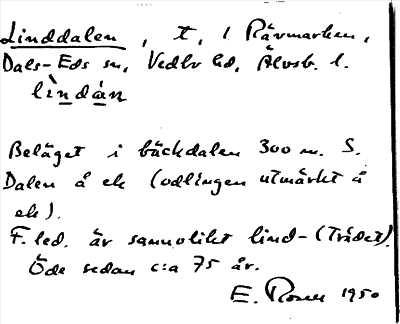 Linddalen, t, i Rävmarken,
Dals-Eds sn, Vedbo hd, Älvsb. l.
lìndán
Beläget i bäckdalen 300 m. S.
Dalen å ek (odlingen utmärkt å
ek).
F. led. är sannolikt lind- (Trädet).
Öde sedan c:a 75 år.
E. 1950